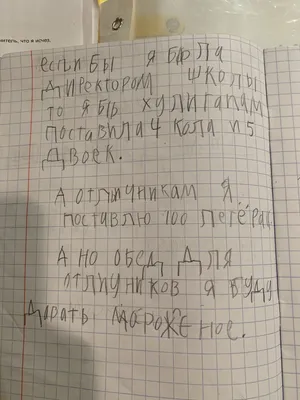 ЕСЛИ БЫ Я БЫЛА
ДИРЕКТОРОМ ШКОЛЫ
ТО Я БЫ ХУЛИГАНАМ
ПОСТАВИЛА 4 КОЛА И 5
ДВОЕК.
А ОТЛИЧНИКАМ Я
ПОСТАВЛЮ 100 ПЕТЁРАК
А НО ОБЕД ДЛЯ
ОТЛИЧНИКОВ Я БУДУ
ДАРАТЬ МОРОЖЕНОЕ.